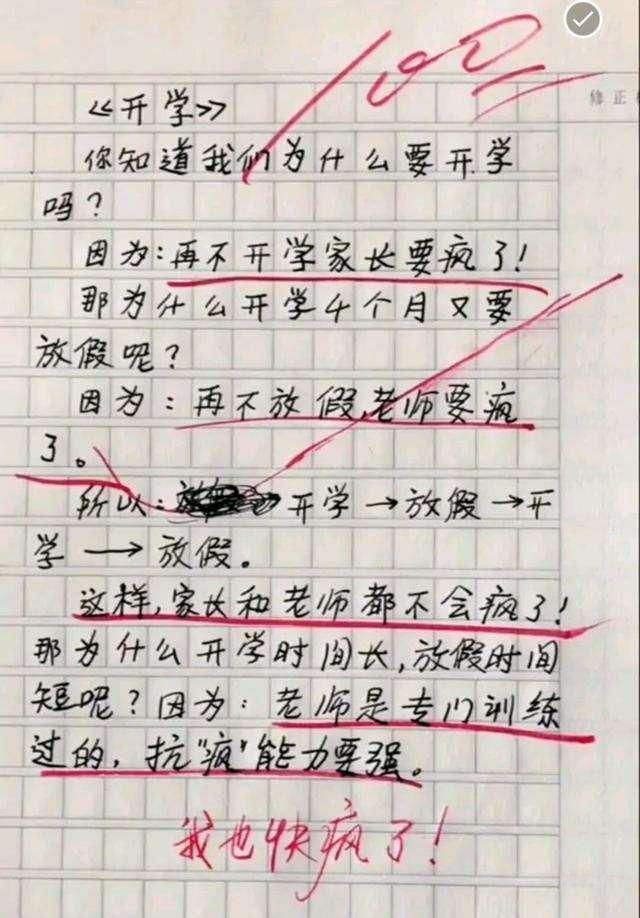 100
修正
《开学》
你知道我们为什么要开学
吗？
因为：再不开学家长要疯了！
那为什么开学4个月又要
放假呢？
因为：再不放假，老师要疯
了。
所以：开学→放假→开
学→放假。
这样，家长和老师都不会疯了！
那为什么开学时间长，放假时间
短呢？因为：老师是专门训练
过的，抗“疯”能力要强。
我也快疯了！